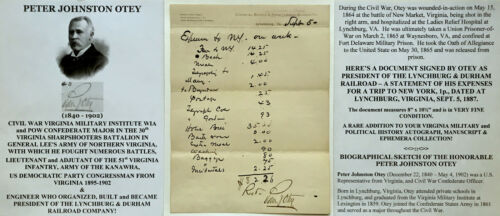 PETER JOHNSTON OTEY
(1840 - 1902)
CIVIL WAR VIRGINIA MILITARY INSTITUTE WIA
and POW CONFEDERATE MAJOR IN THE 30th
VIRGINIA SHARPSHOOTERS BATTALION IN
GENERAL LEE'S ARMY OF NORTHERN VIRGINIA,
WITH WHICH HE FOUGHT NUMEROUS BATTLES,
LIEUTENANT and ADJUTANT OF THE 51st VIRGINIA
INFANTRY, ARMY OF THE KANAWHA,
US DEMOCRATIC PARTY CONGRESSMAN FROM
VIRGINIA 1895-1902
and
ENGINEER WHO ORGANIZED, BUILT and BECAME
PRESIDENT OF THE LYNCHBURG & DURHAM
RAILROAD COMPANY!
Sept 5
Expenses to N.Y. on work -
14.25
" Back 14.25
Meals
Telegraphy to
to Boynton 2.00
Postage 25
43
93
Hotel Bill
Extra Meal 2.00
Baggage
Peter J Otey
During the Civil War, Otey was wounded-in-action on May 15,
1864 at the battle of New Market, Virginia, being shot in the
right arm, and hospitalized at the Ladies Relief Hospital at
Lynchburg, VA. He was ultimately taken a Union Prisoner-of-
War on March 2, 1865 at Waynesboro, VA, and confined at
Fort Delaware Military Prison. He took the Oath of Allegiance
to the United State on May 30, 1865 and was released from
prison.
HERE'S A DOCUMENT SIGNED BY OTEY AS
PRESIDENT OF THE LYNCHBURG & DURHAM
RAILROAD – A STATEMENT OF HIS EXPENSES
FOR A TRIP TO NEW YORK, 1p., DATED AT
LYNCHBURG, VIRGINIA, SEPT. 5, 1887.
The document measures 8" x 10½" and is in VERY FINE
CONDITION.
A RARE ADDITION TO YOUR VIRGINIA MILITARY and
POLITICAL HISTORY AUTOGRAPH, MANUSCRIPT &
EPHEMERA COLLECTION!
BIOGRAPHICAL SKETCH OF THE HONORABLE
PETER JOHNSTON OTEY
Peter Johnston Otey (December 22, 1840 – May 4, 1902) was a U.S.
Representative from Virginia, and Civil War Confederate Officer.
Born in Lynchburg, Virginia, Otey attended private schools in
Lynchburg, and graduated from the Virginia Military Institute in
Lexington in 1859. Otey joined the Confederate States Army in 1861
and served as a major throughout the Civil War.